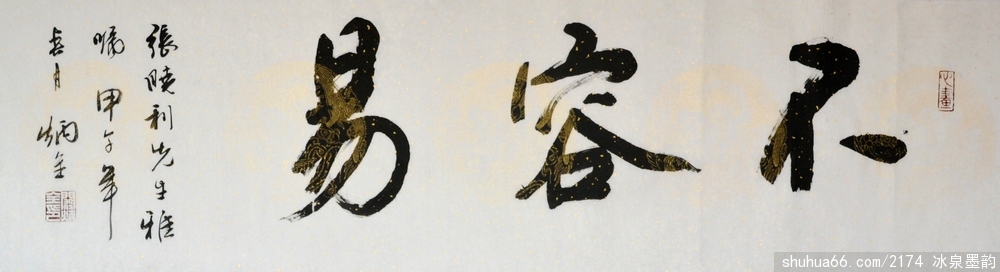 不容易
張曉利先生雅
嘱 甲午年
春月 炳全
shuhua66.com/2174 冰泉墨韵